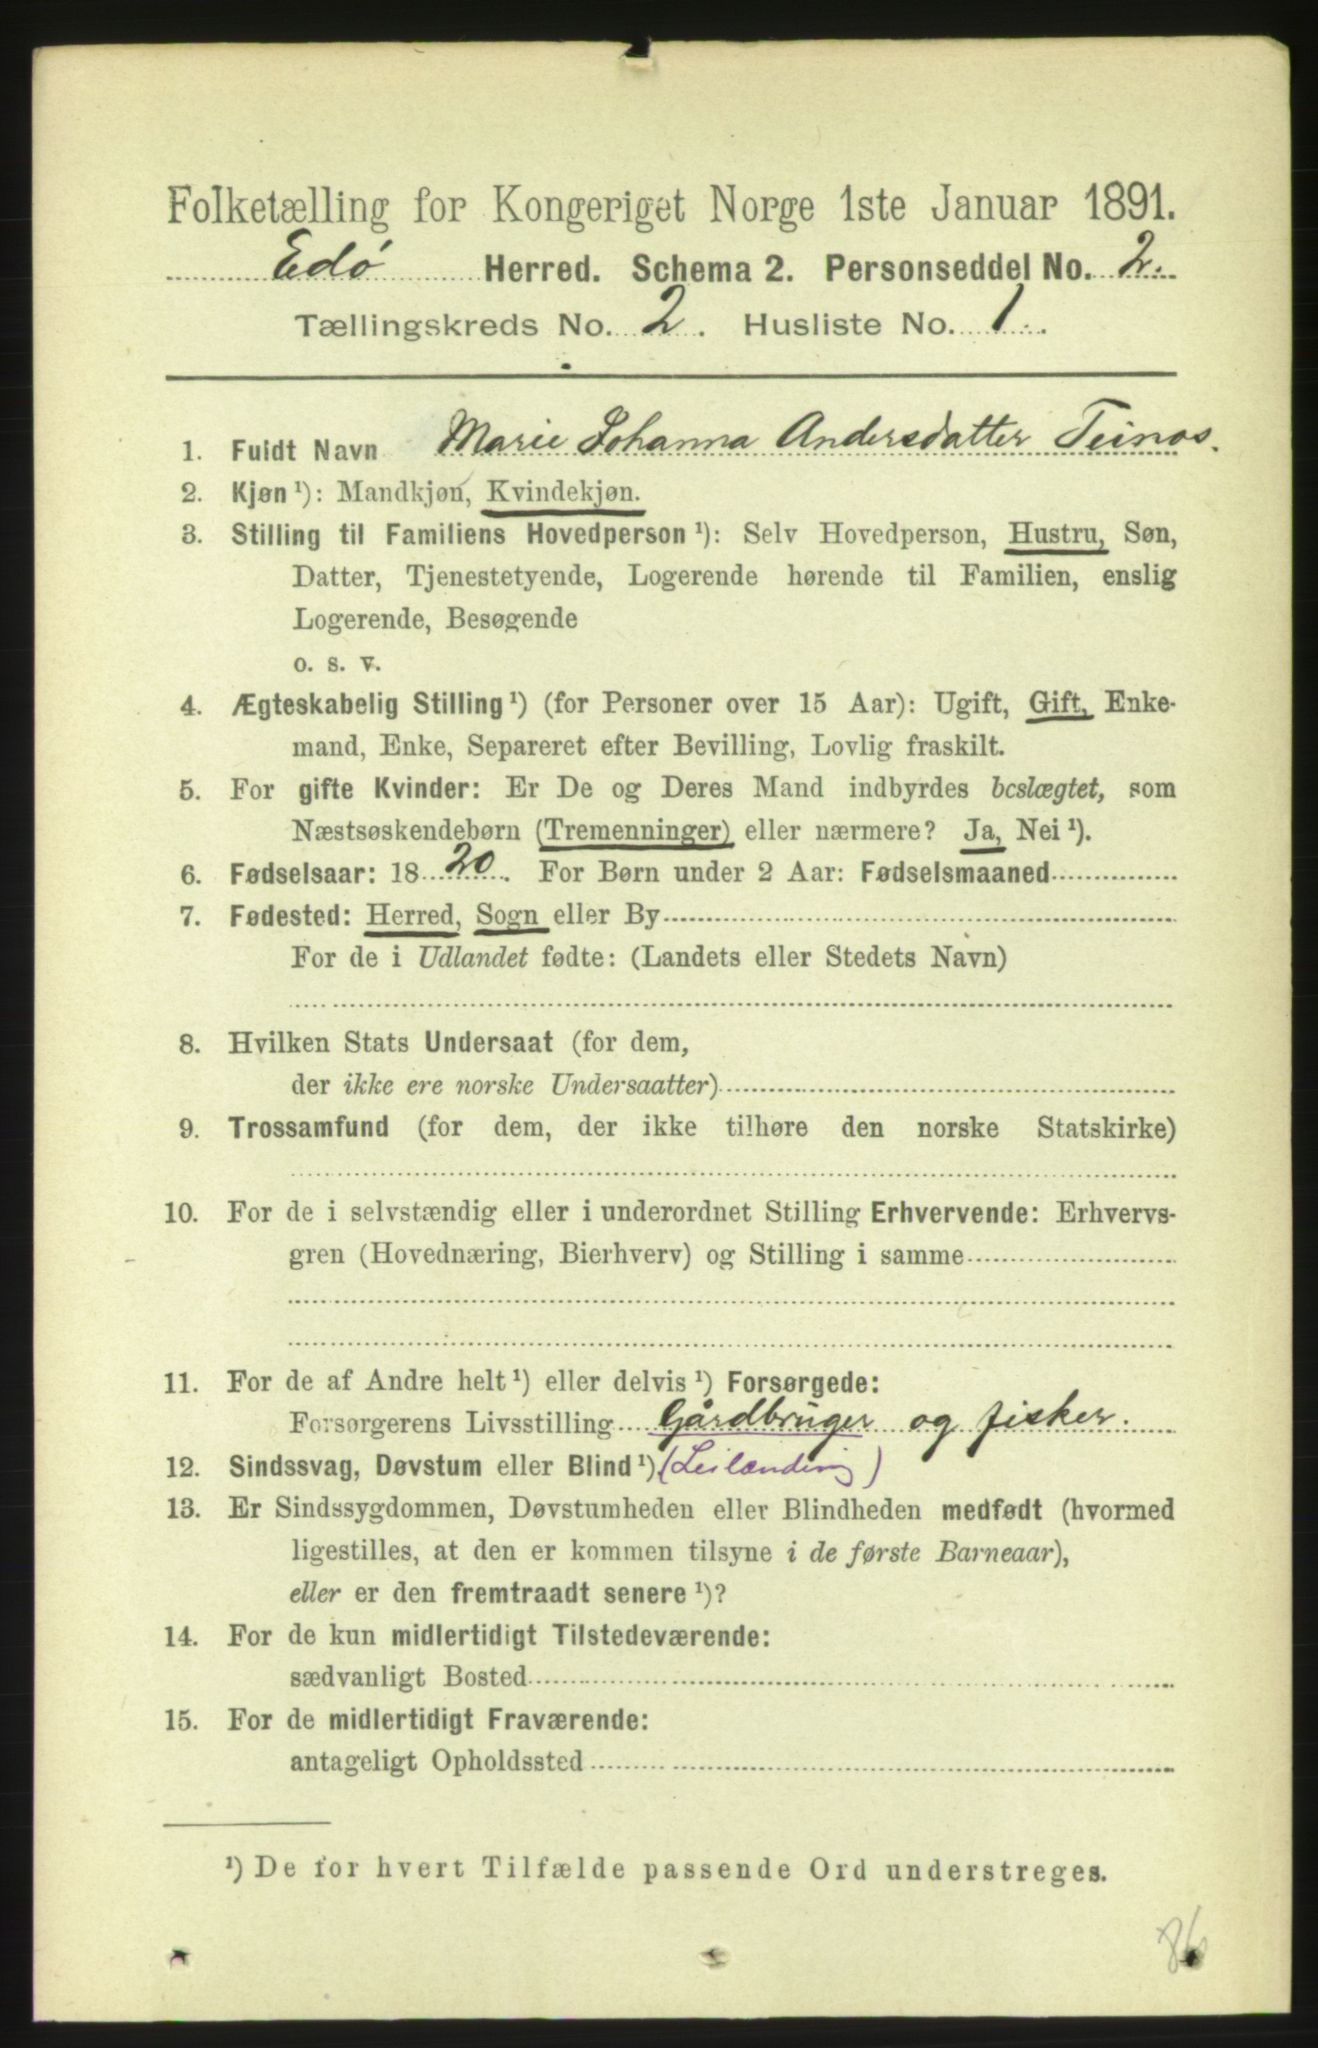 Folketælling for Kongeriget Norge 1ste Januar 1891.
Edø Herred. Schema 2. Personseddel No. 2.
Tællingskreds No. 2. Husliste No. 1.
1. Fuldt Navn Marie Johanna Andersdatter Teinos.
2. Kjøn ¹): Mandkjøn, Kvindekjøn.
3. Stilling til Familiens Hovedperson ¹): Selv Hovedperson, Hustru, Søn,
Datter, Tjenestetyende, Logerende hørende til Familien, enslig
Logerende, Besøgende
o. s. v.
4. Ægteskabelig Stilling ¹) (for Personer over 15 Aar): Ugift, Gift, Enke-
mand, Enke, Separeret efter Bevilling, Lovlig fraskilt.
5. For gifte Kvinder: Er De og Deres Mand indbyrdes beslægtet, som
Næstsøskendebørn (Tremenninger) eller nærmere? Ja, Nei ¹).
6. Fødselsaar: 1820. For Børn under 2 Aar: Fødselsmaaned
7. Fødested: Herred, Sogn eller By
For de i Udlandet fødte: (Landets eller Stedets Navn)
8. Hvilken Stats Undersaat (for dem,
der ikke ere norske Undersaatter)
9. Trossamfund (for dem, der ikke tilhøre den norske Statskirke)
10. For de i selvstændig eller i underordnet Stilling Erhvervende: Erhvervs-
gren (Hovednæring, Bierhverv) og Stilling i samme
11. For de af Andre helt ¹) eller delvis ¹) Forsørgede:
Forsørgerens Livsstilling Gårdbruger og fisker.
12. Sindssvag, Døvstum eller Blind ¹). (Leilænding)
13. Er Sindssygdommen, Døvstumheden eller Blindheden medfødt (hvormed
ligestilles, at den er kommen tilsyne i de første Barneaar),
eller er den fremtraadt senere ¹)?
14. For de kun midlertidigt Tilstedeværende:
sædvanligt Bosted
15. For de midlertidigt Fraværende:
antageligt Opholdssted
¹) De for hvert Tilfælde passende Ord understreges.
86